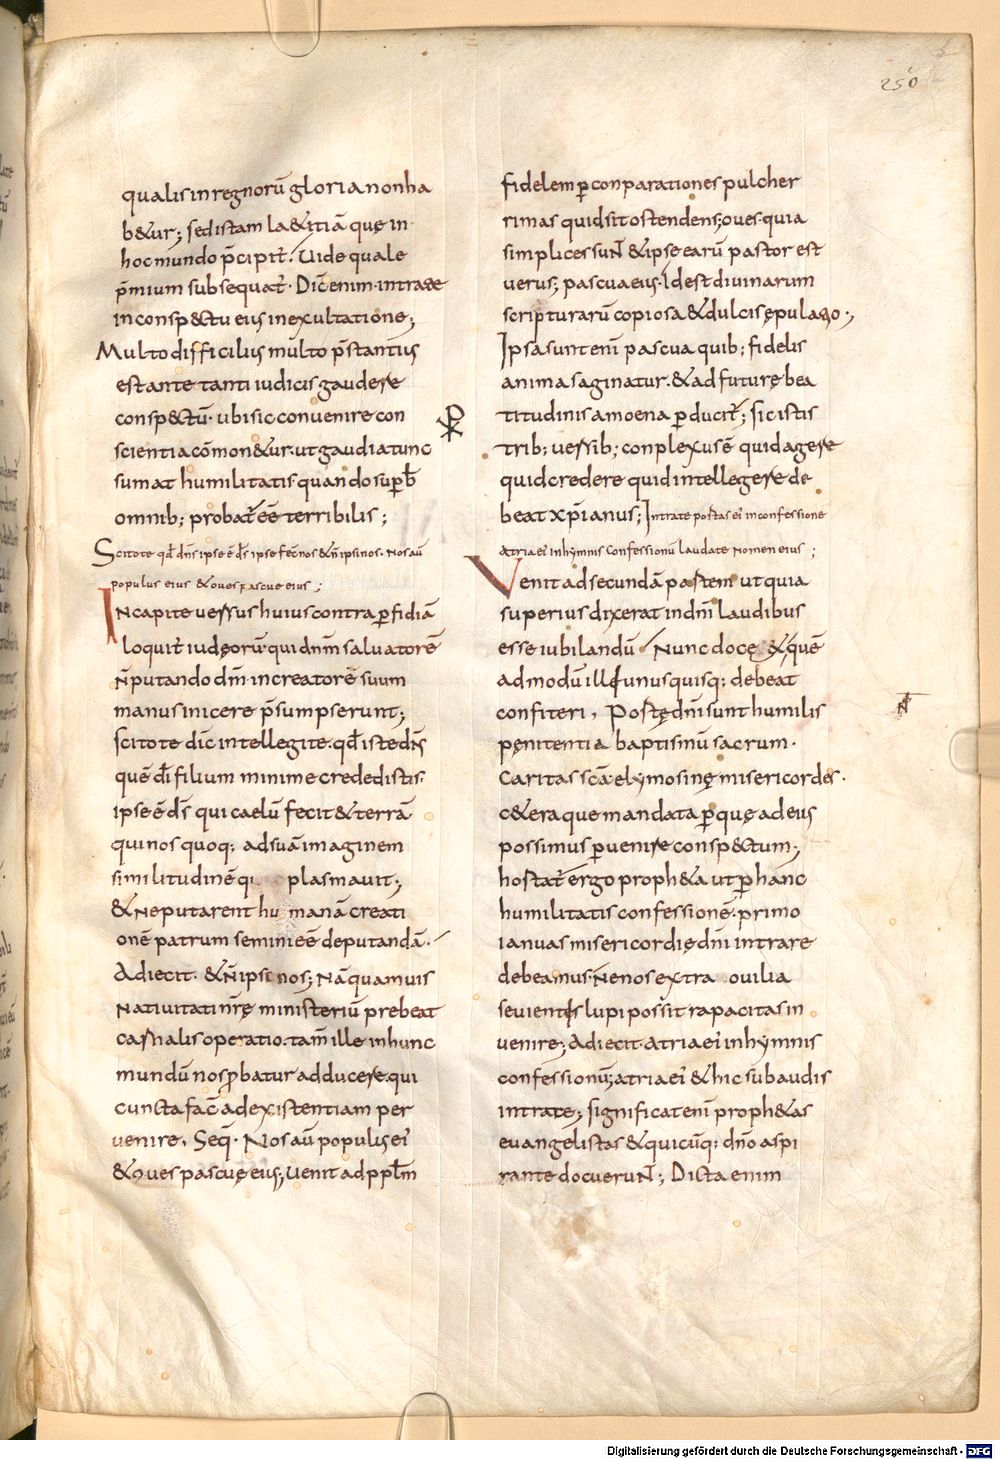 250
qualis in regnorũ gloria non ha
b&ur; sed istam la&itiã quę in
hoc mundo p̄cipit̃. Uide quale
p̄mium subsequat̃. Dic̄ enim intrate
in consp&tu eius in exultatione;
Multo difficilius multo p̄stantius
est ante tanti iudicis gaudere
consp&tũ. ubi sic convenire con
scientia cõmon&ur. ut gaudia tunc
sumat humilitatis quando supb̄
omnib; probat̃ eē terribilis;
Scitote qd̄ dñs ipse ē d̄s ipse fec̄ nos & ñ ipsi nos. Nos aũ
populus eius & oves pascue eius;
In capite versus huius contra pfidiã
loquit̃ iudęorũ qui dnm̄ salvatorē
ñ putando dm̄ in creatorē suum
manus inicere p̄sumpserunt;
scitote dic̄ intellegite. qd̄ iste dñs
quē di filium minime credidistis.
ipse ē d̄s qui caelũ fecit & terrã
qui nos quoq; ad suã imaginem
similitudinēq; plasmavit;
& ne putarent humanã creati
onē patrum semini eē deputandã.
Adiecit. & ñ ipsi nos; Nã quamvis
nativitati nr̄ę ministeriũ prebeat
carnalis operatio. tam̄ ille in hunc
mundũ nos pbatur adducere. qui
cuncta fac̄ ad existentiam per
venire. Seq̄. Nos aũ populus ei'
& oves pascuę eius; Venit ad ppl̄m
fidelem p conparationes pulcher
rimas quid sit ostendens; oves quia
simplices sunt & ipse earũ pastor est
verus; pascua eius. Id est divinarum
scripturarũ copiosa & dulcis ępulatio;
Ipsa sunt enī pascua quib; fidelis
anima saginatur. & ad futurę bea
titudinis amoena pducit̃; sic istis
trib; versib; conplexus ē quid agere
quid credere quid intellegere de
beat xp̄ianus; Intrate portas ei' in confessione
atria ei' in hymnis confessionũ laudate nomen eius;
Venit ad secundã partem ut quia
superius dixerat in dnī laudibus
esse iubilandũ. Nunc doc& quē
admodũ illi unusquisq; debeat
confiteri. Portę dnī sunt humilis
pęnitentia baptismũ sacrum.
Caritas sc̄a. elymosinę misericordes.
c&eraque mandata p quę ad eius
possimus pvenire consp&tum;
hostat̃ ergo proph&a ut p hanc
humilitatis confessionē. primo
ianuas misericordię dnī intrare
debeamus. Ne nos extra ovilia
sevientis lupi possit rapacitas in
venire; Adiecit. atria ei' in hymnis
confessionũ; atria ei' & hic subaudis
intrate; significat enī proph&as
evangelistas & quicũq; dño aspi
rante docuerunt; Dicta enim
Digitalisierung gefördert durch die Deutsche Forschungsgemeinschaft - DFG